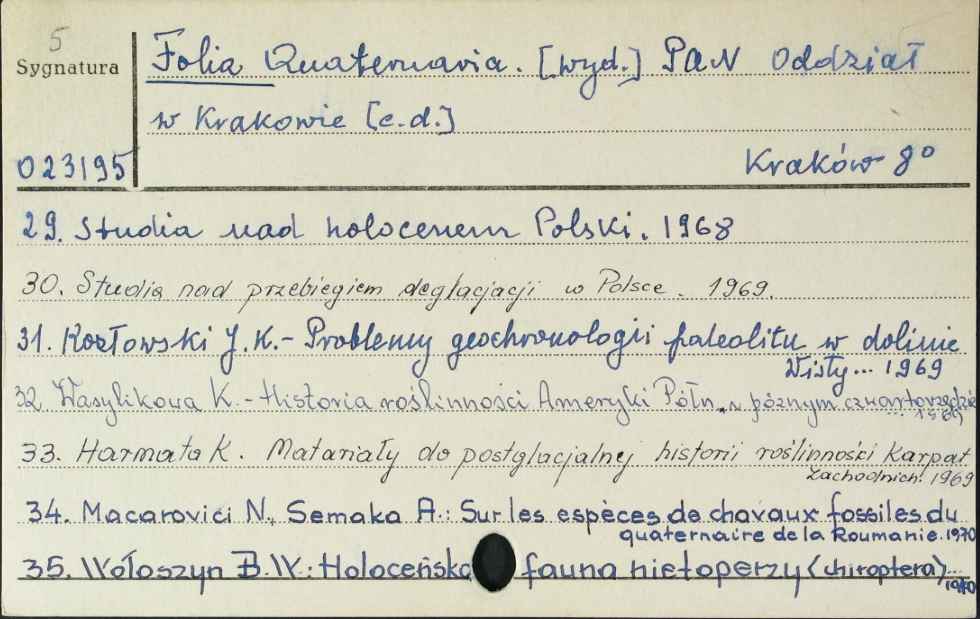 5
Sygnatura
Folia Quaternaria. [wyd.] PAN Oddział
w Krakowie [c.d.]
023195
Kraków 8°
29. Studia nad holocenem Polski. 1968
30. Studia nad przebiegiem deglacjacji w Polsce. 1969.
31. Kozłowski J.K.- Problemy geochronologii paleolitu w dolinie
Wisły... 1969
32 Wasylikowa K.-Historia roślinności Ameryki Półn. w późnym czwartorzędzie
... 1969
33. Harmata K. Matariały do postglacjalnej historii roślinności Karpat
Zachodnich. 1969
34. Macarovici N., Semaka A.: Sur les espèces de chavaux fossiles du
quaternaire de la Roumanie. 1970
35. Wołoszyn B.W.: Holoceńska fauna nietoperzy (chiroptera)...
1970